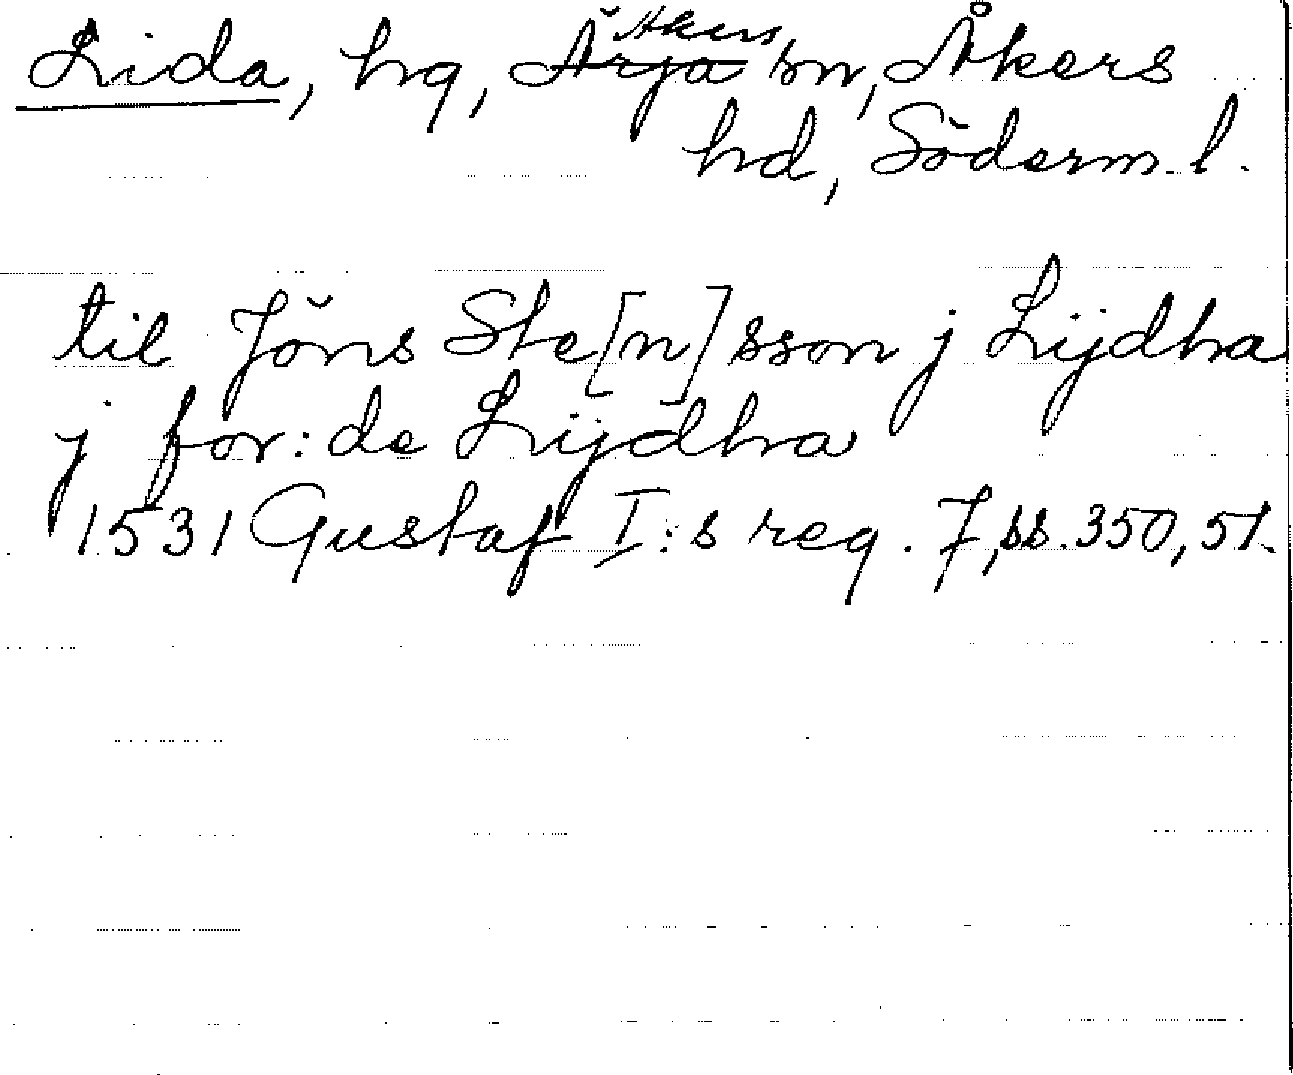 Lida, hg, Ärja Åkers sn, Åkers
hd, Söderm. l.
til Jöns Ste[n]sson j Lijdha
j for:de Lijdha
1531 Gustaf I:s reg. 7, ss. 350, 51.